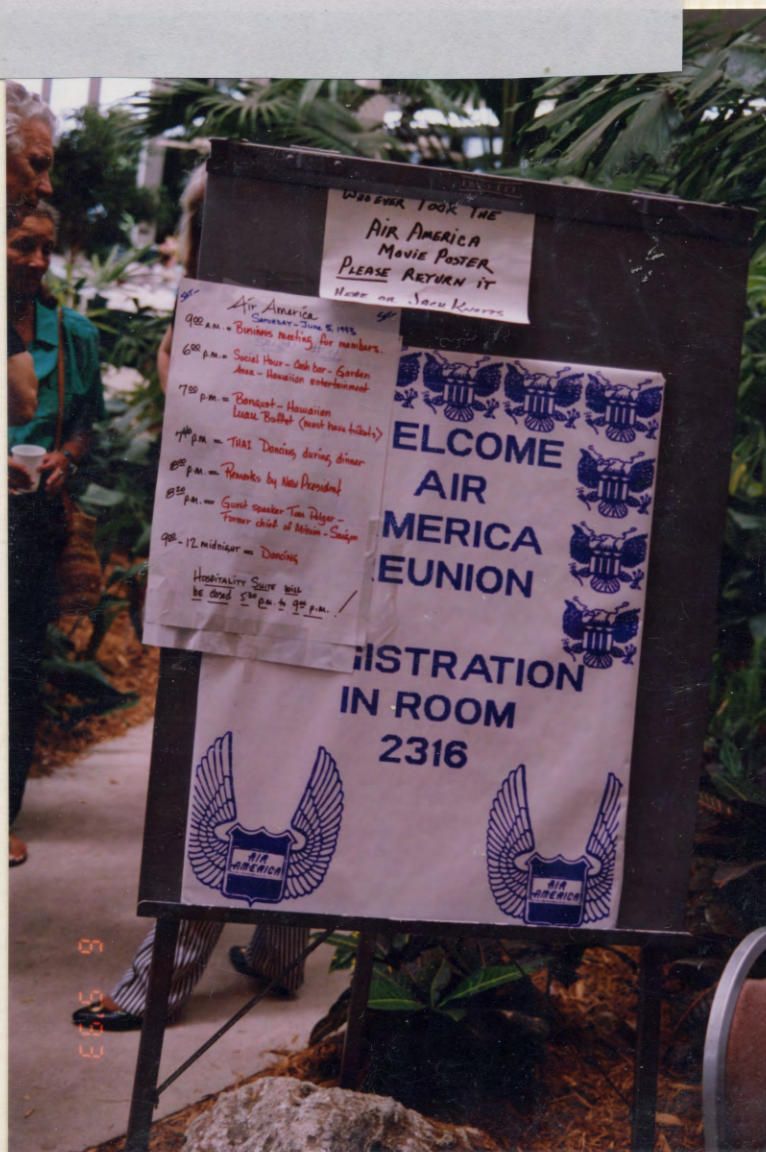 WHO EVER TOOK THE
AIR AMERICA
MOVIE POSTER
PLEASE RETURN IT
HERE OR JACK KNOTTS
SAT- Air America SAT-
Saturday - June 5, 1993
9:00 A.M. = Business meeting for members.
6:00 P.M. = Social Hour - Cash bar - Garden
Area - Hawaiian entertainment
7:00 P.M. = Banquet - Hawaiian
Luau Buffet (must have tickets)
P.M. = THAI Dancing during dinner
8:00 P.M. = Remarks by New President
8:30 P.M. = Guest speaker Tom Polgar -
Former chief of Mission - Saigon
9:00 - 12 midnight = Dancing
HOSPITALITY SUITE WILL
BE closed 5:30 P.M. to 9:00 P.M. !
ELCOME
AIR
MERICA
EUNION
ISTRATION
IN ROOM
2316
AIR
AMERICA
AIR
AMERICA
6 5'93